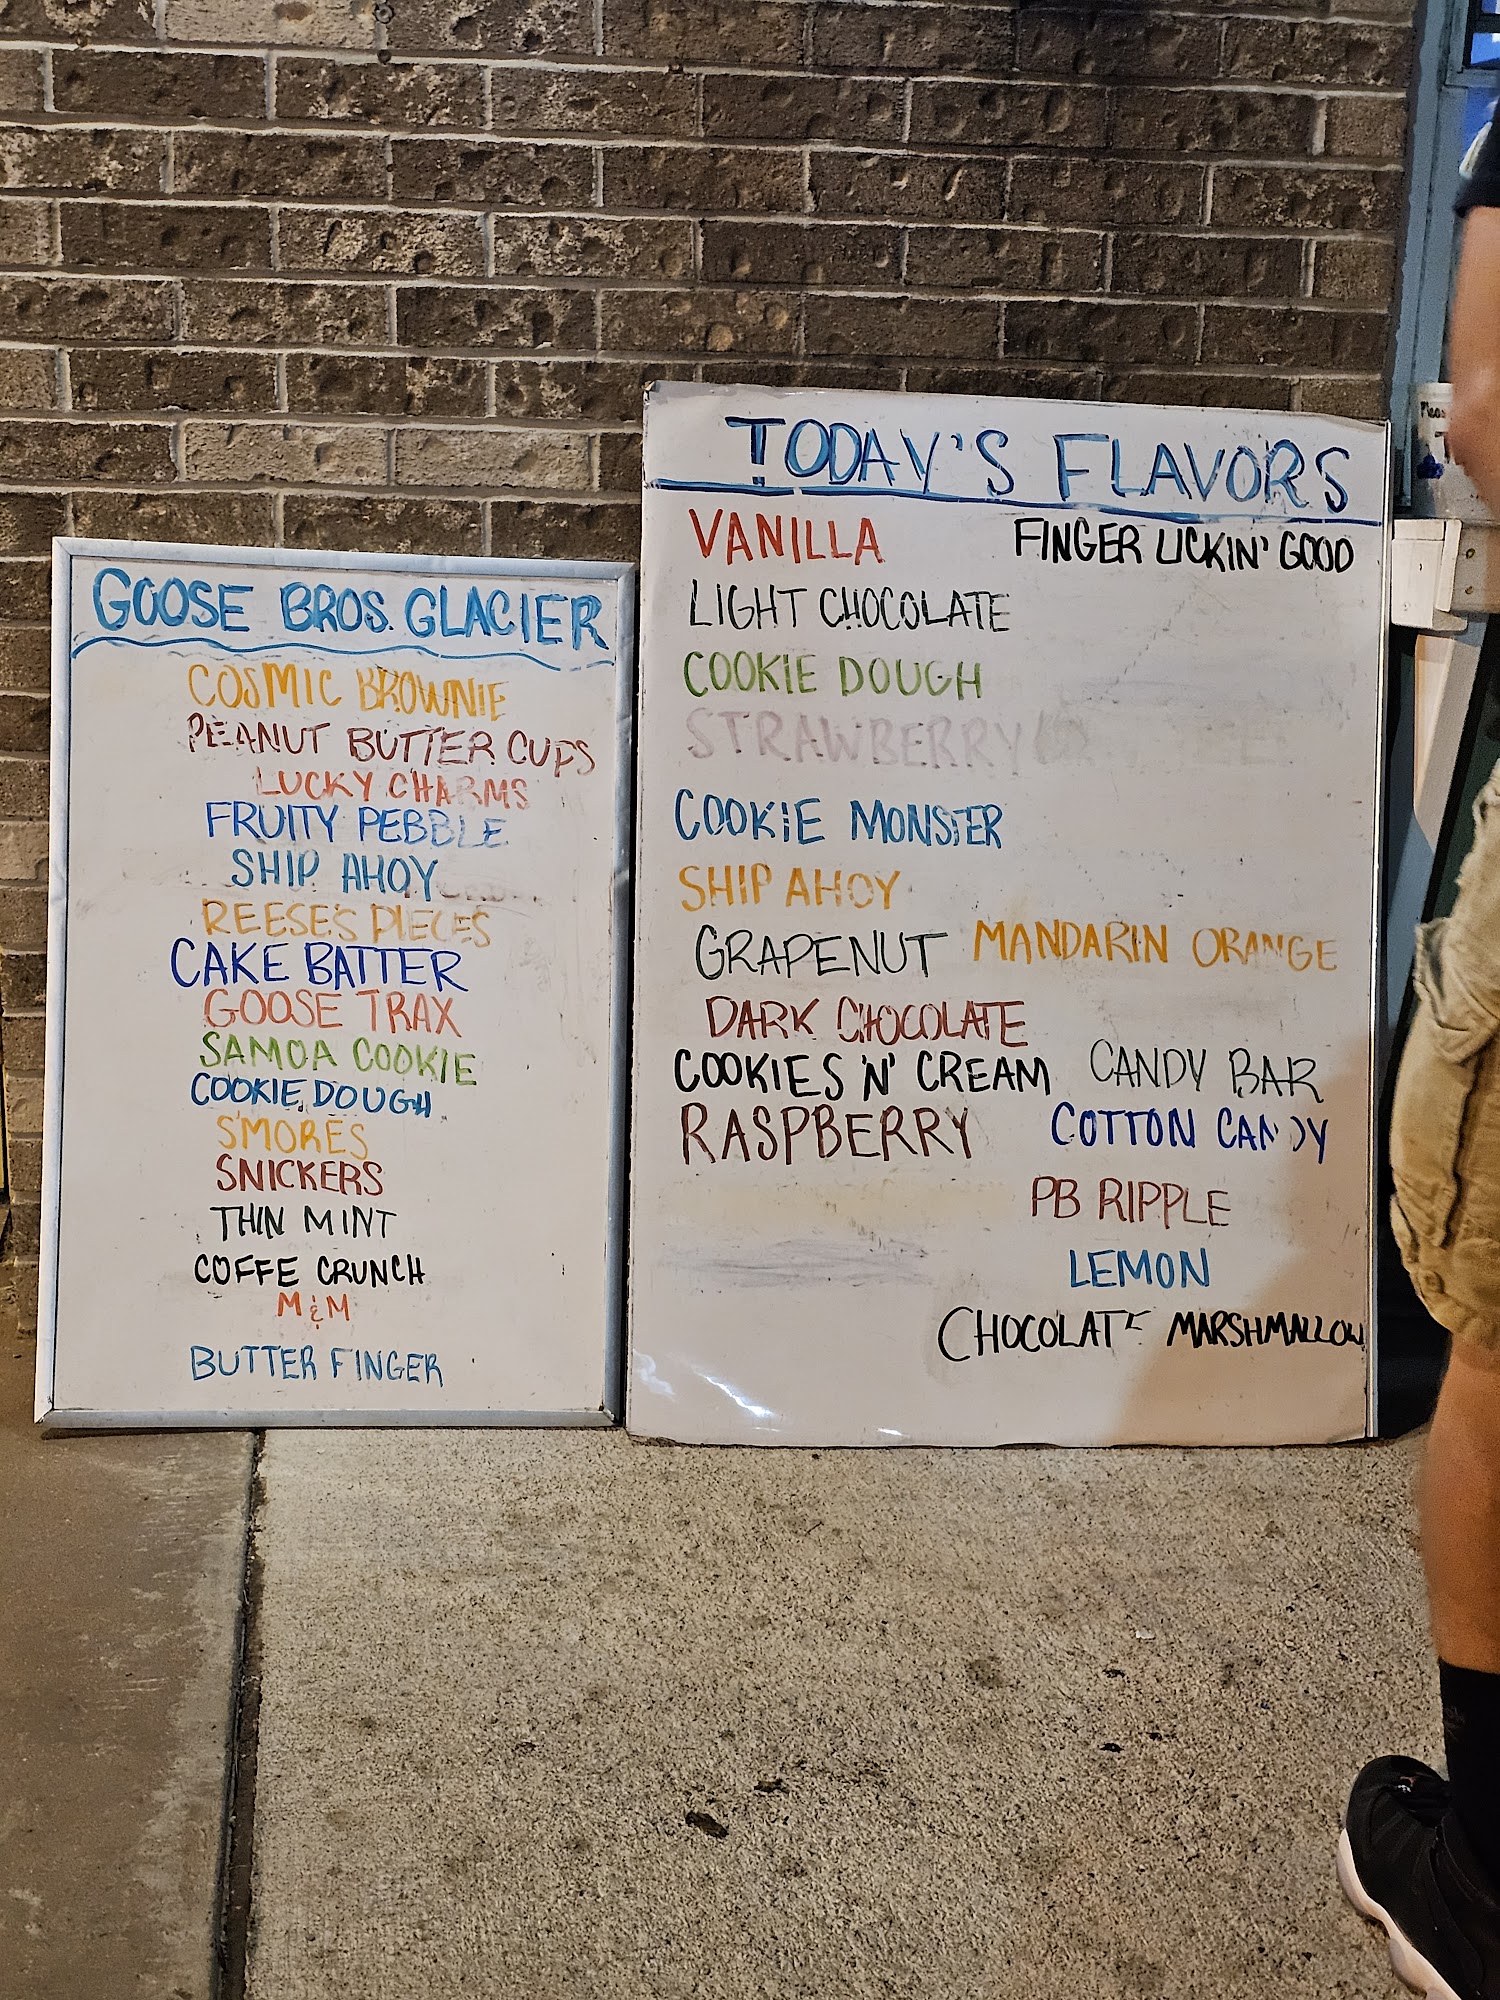 GOOSE BROS. GLACIER
COSMIC BROWNIE
PEANUT BUTTER CUPS
LUCKY CHARMS
FRUITY PEBBLE
SHIP AHOY
REESE'S PIECES
CAKE BATTER
GOOSE TRAX
SAMOA COOKIE
COOKIE DOUGH
S'MORES
SNICKERS
THIN MINT
COFFE CRUNCH
M&M
BUTTER FINGER
TODAY'S FLAVORS
VANILLA
FINGER LICKIN' GOOD
LIGHT CHOCOLATE
COOKIE DOUGH
STRAWBERRY
COOKIE MONSTER
SHIP AHOY
GRAPENUT
MANDARIN ORANGE
DARK CHOCOLATE
COOKIES 'N' CREAM
CANDY BAR
RASPBERRY
COTTON CANDY
PB RIPPLE
LEMON
CHOCOLATE MARSHMALLOW